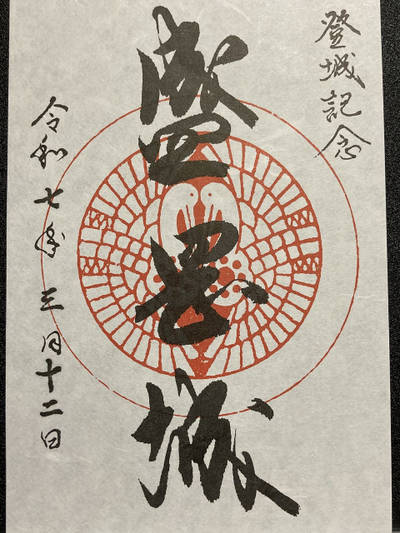 登城記念
盛岡城
令和七年三月十二日